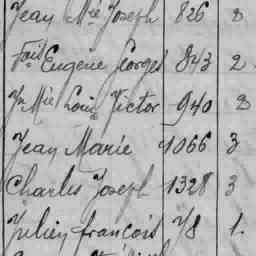 Jean Mie Joseph 826 2
Fois Eugène Georges 843 2
Yv Mie Louis Victor 940 2
Jean Marie 1066 3
Charles Joseph 1328 3
Julien francois 78 1